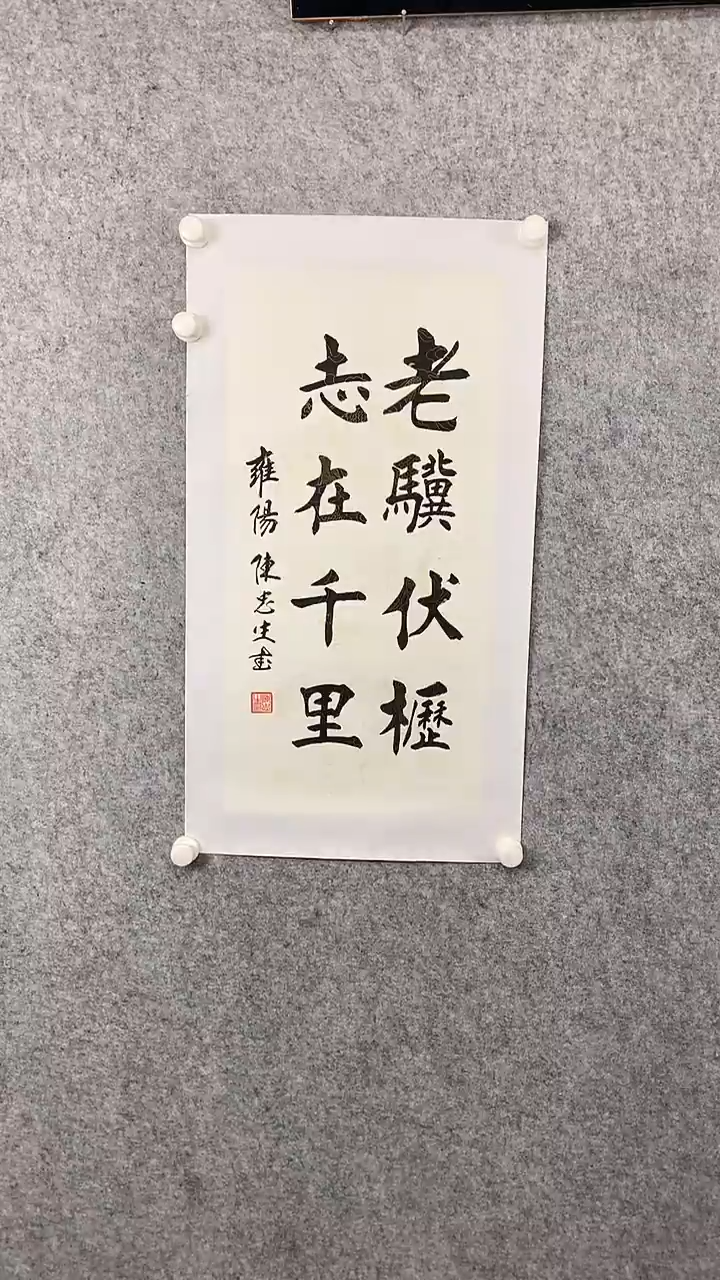 老驥伏櫪
志在千里
雍陽 陳忠生書